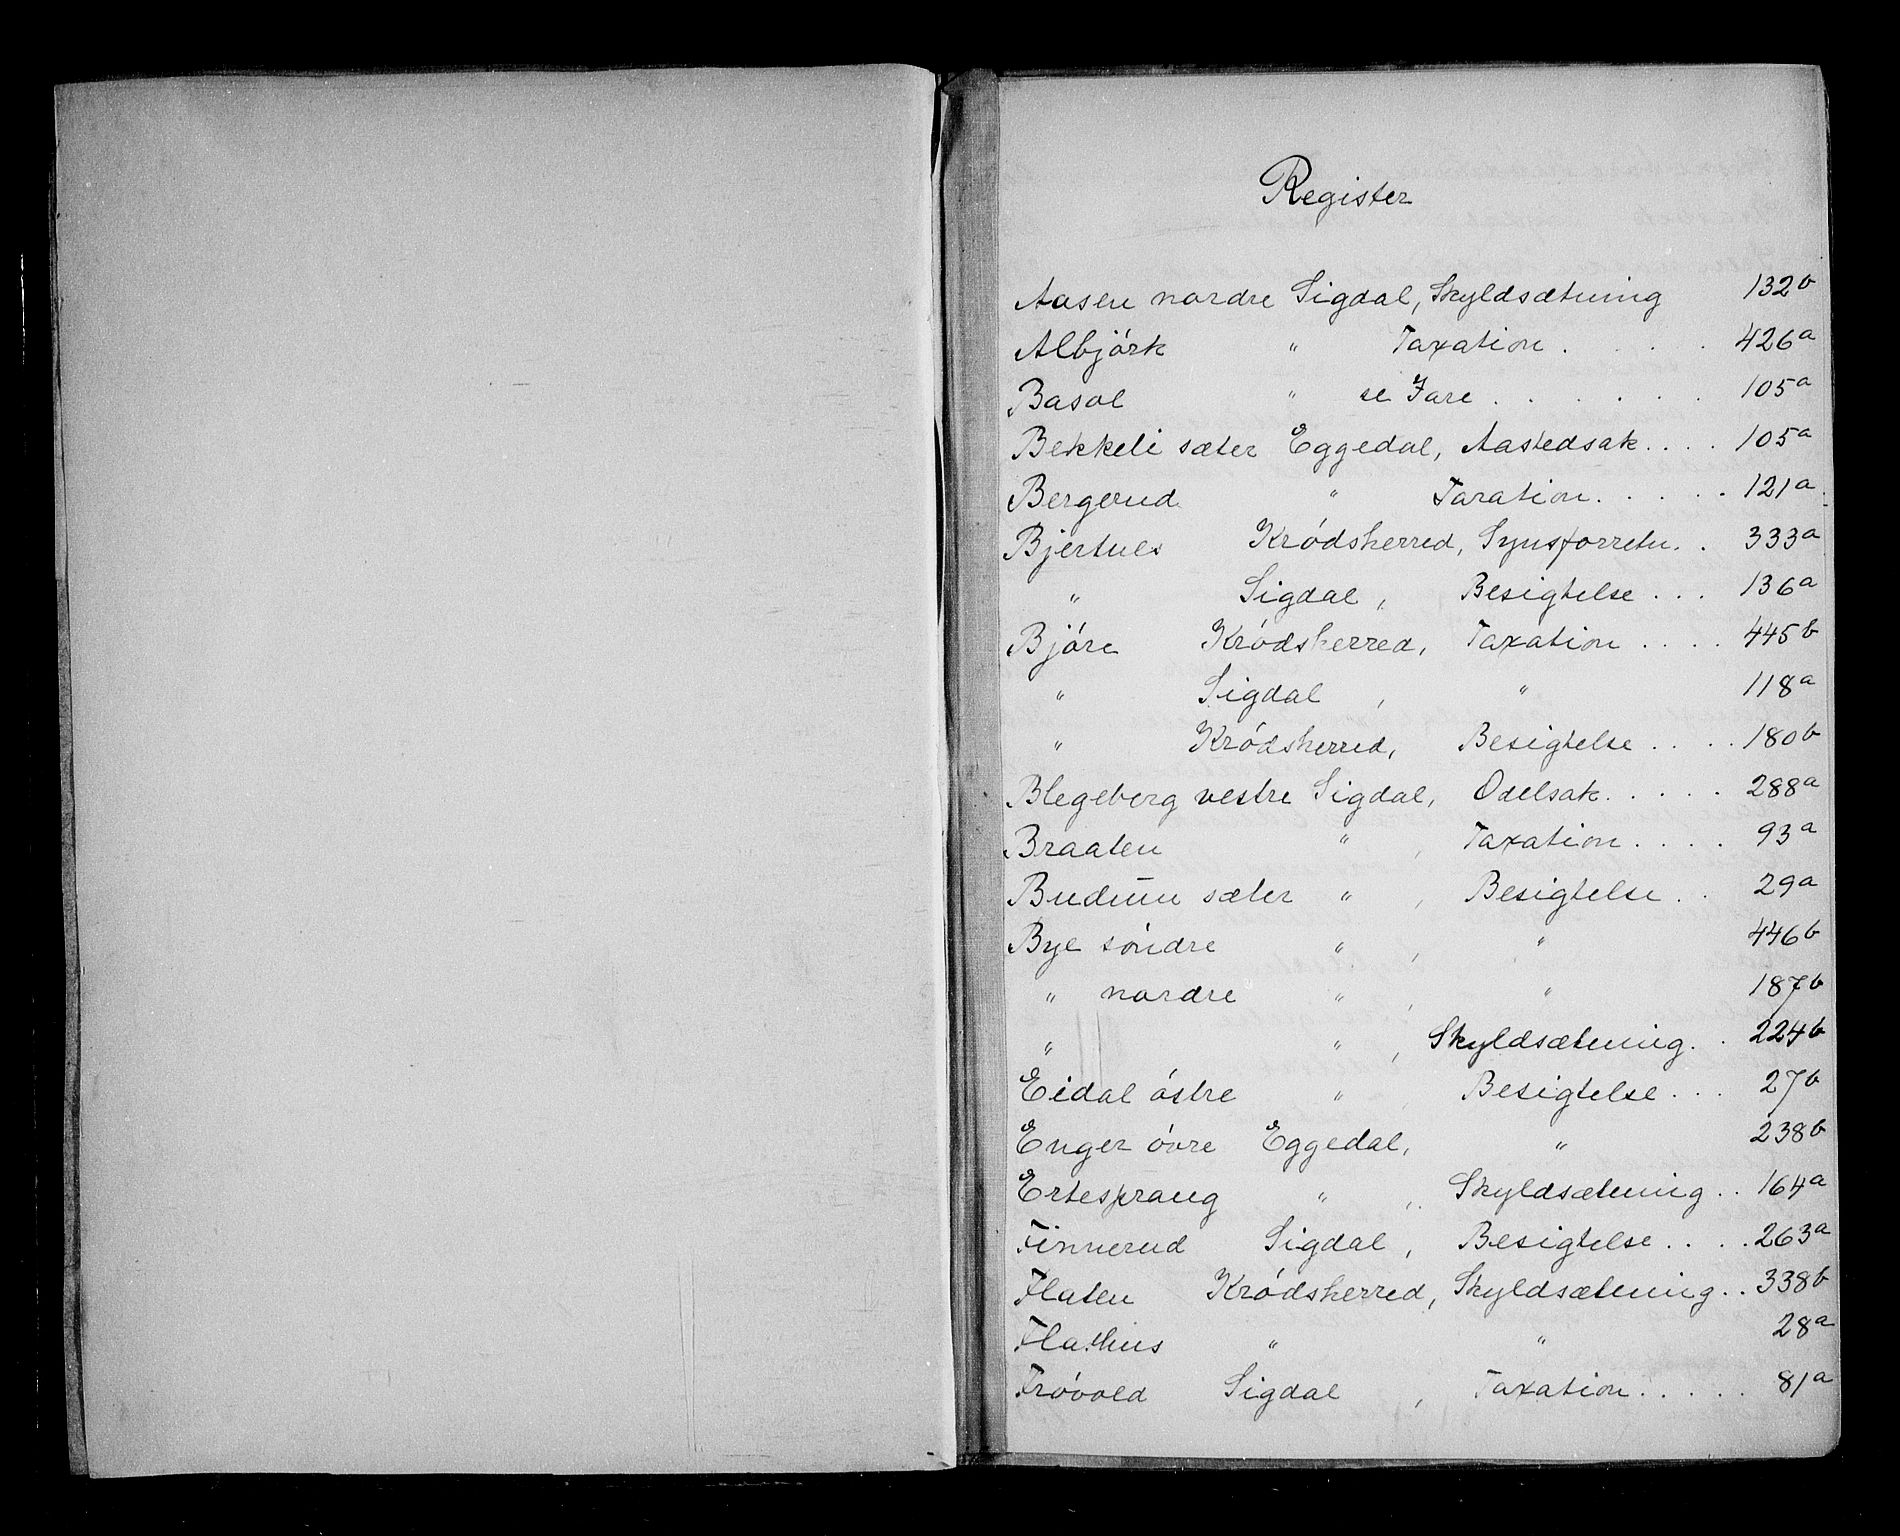 Register
Aasen nordre Sigdal, Skyldsætning 132b
Albjórk " Taxation . . . . 426a
Basol " se Fare . . . . . . 105a
Bekkeli sæter Eggedal, Aastedsak . . . . 105a
Bergerud " Taxation . . . . . 121a
Bjertnes Kródsherred, Synsforretn. . 333a
" Sigdal, Besigtelse . . . 136a
Bjóre Kródsherred, Taxation . . . . 445b
" Sigdal, " 118a
" Kródsherred, Besigtelse . . . . 180b
Blegeberg vestre Sigdal, Odelsak . . . . . 288a
Braaten " , Taxation . . . . 93a
Budum sæter " , Besigtelse . . 29a
Bye sóndre " , " 446b
" nordre " , " 187b
" " , Skyldsætning . . 224b
Eidal óstre " , Besigtelse . . . 27b
Enger óvre Eggedal, " 238b
Ertesprang " , Skyldsætning . . 164a
Finnerud Sigdal, Besigtelse . . . . 263a
Flaten Kródsherred, Skyldsætning . . 338b
Flathus " " 28a
Fróvold Sigdal , Taxation . . . . . 81a